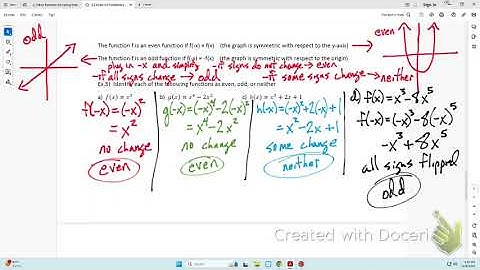 odd
even
The function f is an even function if f(-x) = f(x) (the graph is symmetric with respect to the y-axis)
The function f is an odd function if f(-x) = -f(x) (the graph is symmetric with respect to the origin)
plug in -x and simplify - if signs do not change → even
- if all signs change → odd - if some signs change → neither
Ex.5) Identify each of the following functions as even, odd, or neither
a) f(x) = x²
f(-x) = (-x)²
= x²
no change
even
b) g(x) = x⁴ - 2x²
g(-x) = (-x)⁴ - 2(-x)²
= x⁴ - 2x²
no change
even
c) h(x) = x² + 2x + 1
h(-x) = (-x)² + 2(-x) + 1
= x² - 2x + 1
some change
neither
d) f(x) = x³ - 8x⁵
f(-x) = (-x)³ - 8(-x)⁵
-x³ + 8x⁵
all signs flipped
odd
Created with Doceri